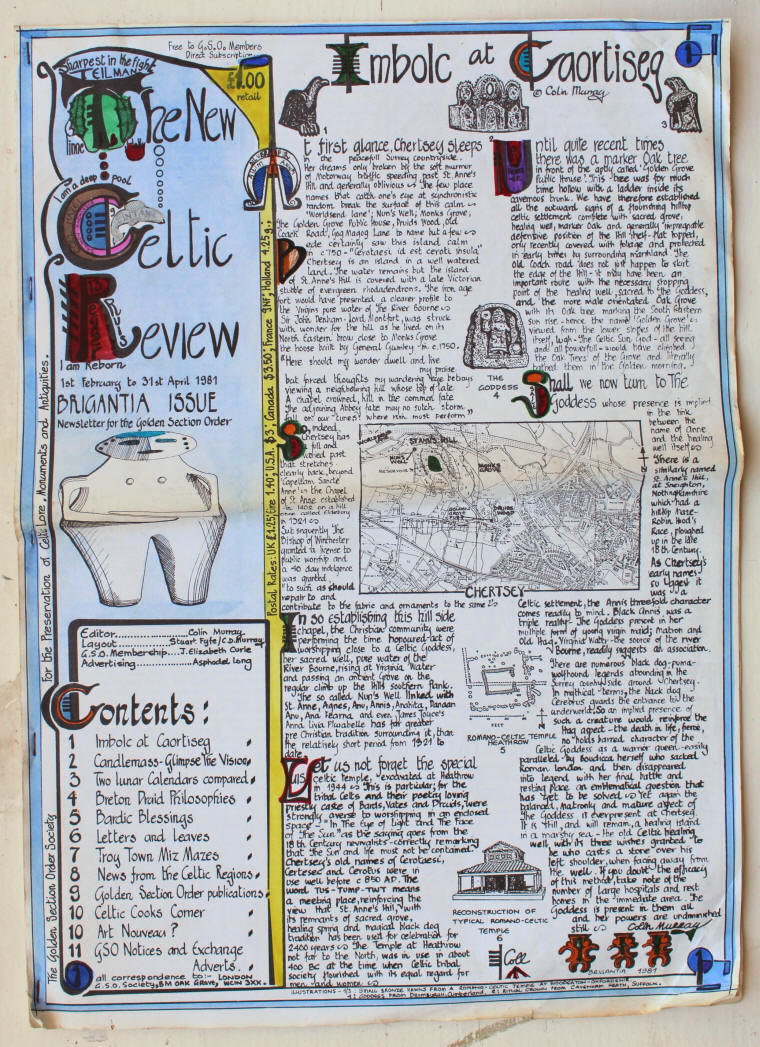 Free to G.S.O. Members
Direct Subscription
£1.00
retail
Sharpest in the fight
TEILMAN
The New
I am a deep pool
Celtic
Review
I am Reborn
1st February to 31st April 1981
BRIGANTIA ISSUE
Newsletter for the Golden Section Order
for the Preservation of Celtic Lore, Monuments and Antiquities.
The Golden Section Order Society
Postal Rates: UK £1.25; Eire 1.40; U.S.A. $3; Canada $3.50; France 9NF; Holland 4.25g.;
Editor..............Colin Murray
Layout..............Stuart Fyfe/C.D.Murray
G.S.O. Membership....J. Elisabeth Curle
Advertising..............Asphodel Long
Contents:
1 Imbolc at Caortiseg
2 Candlemass-Glimpse The Vision
3 Two lunar Calendars compared
4 Breton Druid Philosophies
5 Bardic Blessings
6 Letters and Leaves
7 Troy Town Miz Mazes
8 News from the Celtic Regions
9 Golden Section Order publications
10 Celtic Cooks Corner
10 Art Nouveau?
11 GSO Notices and Exchange
Adverts.
all correspondence to:- LONDON
G.S.O. Society, BM OAK GROVE, WC1N 3XX.
Imbolc at Caortiseg
© Colin Murray
1
3
At first glance, Chertsey sleeps
in the peacefull Surrey countryside.
Her dreams only broken by the soft murmur
of Motorway traffic speeding past St. Anne's
Hill and generally oblivious
The few place
names that catch one's eye at synchronistic
random break the surface of this calm
Worldsend lane; Nun's Well; Monks Grove;
The Golden Grove Public House, Druids Wood, Old
Coach Road; Gog Magog Lane to name but a few
Bede certainly saw this island calm
in c.750
Chertsey is an island in a well watered
land. The water remains but the island
of St. Anne's Hill is covered with a late Victorian
stubble of evergreen rhodadendrons. The iron age
fort would have presented a clearer profile to
the Virgins pure water of The River Bourne
Sir John Denham, Lord Montfort, was struck
with wonder for the hill as he lived on its
North Eastern brow close to Monks Grove
the house built by General Gumley in c.1750.
"Here should my wonder dwell and live
my praise
but forced thoughts my wandering eye betrays
viewing a neighbouring hill whose top of late
A chapel crowned, till in the common fate
The adjoining Abbey fate may no such storm
fall on our times! where ruin must perform"
So, indeed,
Chertsey has
a full and
varied past
that stretches
clearly back, beyond
'Capellam Sancte
Anne' in the Chapel
of St Anne established
on a hill
in 1321
Subsequently the
Bishop of Winchester
granted a license to
public worship and
a 40 day indulgence
was granted,
"to such as should
repair to and
contribute to the fabric and ornaments to the same"
In so establishing this hill side
chapel, the Christian community were
performing the time honoured-act of
worshipping close to a Celtic Goddess,
her sacred well, pure water of the
River Bourne, rising at Virginia Water
and passing an ancient Grove on the
regular climb up the Hills southern flank.
The so called Nun's Well linked with
St. Anne, Agnes, Anu, Annis, Anahita, Danaan
Anu, Ana Fearna, and even James Joyce's
Anna Livia Pluabelle has far greater
pre Christian tradition surrounding it, than
the relatively short period from 1321 to
date.
Let us not forget the special
Celtic Temple, excavated at Heathrow
in 1944
This is particular; for the
tribal Celts and their poetry loving
priestly caste of Bards, Vates and Druids, were
strongly averse to worshipping in an enclosed
space
"In The Eye of Light and The Face
of The Sun" as the saying goes from the
18th Century revivalists - correctly remarking
that the Sun and life must not be contained
Chertsey's old names of Cerotaesi,
Certesec and Cerotus were in
use well before c 850 AD. The
word TUS-TUMP-TWT means
a meeting place, reinforcing the
view that St. Anne's Hill, with
its remnants of sacred grove,
healing spring and magical black dog
tradition has been used for celebration for
2400 years
The Temple at Heathrow
not far to the North, was in use in about
400 BC at the time when Celtic tribal
society flourished with its equal regard for
men and women
Until quite recent times
there was a marker Oak tree
in front of the aptly called 'Golden Grove
Public House'. This tree was for much
time hollow with a ladder inside its
cavernous trunk. We have therefore established
all the outward signs of a flourishing hilltop
celtic settlement complete with sacred grove;
healing well, marker oak and generally impregnable
defensive position of the hill itself. That happen
only recently covered with foliage and protected
in early times by surrounding marshland. The
old Coach road does not just happen to skirt
the edge of the Hill - it may have been an
important route with the necessary stopping
point of the healing well, sacred to the Goddess,
and the more male orientated Oak Grove
with its Oak tree marking the South Eastern
sun rise - hence the name 'Golden Grove' -
viewed from the lower slopes of the hill
itself, Lugh - the Celtic Sun God - all seeing
and all powerful - would have climbed
the Oak Trees of the Grove and literally
bathed them in the Golden morning.
THE
GODDESS
4
Shall we now turn to The
Goddess whose presence is implied
in the link
between the
name of Anne
and the healing
well itself
There is a
similarly named
St Anne's Hill,
at Sneighton,
Nottinghamshire
which had a
hilltop Maze-
Robin Hood's
Race, ploughed
up in the late
18th Century.
As Chertsey's
early names-
suggest it
was a
STANN'S HILL
NUN'S
WELL
RESERVOIR
MONK'S
GROVE
GOLDEN
GROVE
PUB
DRUIDS
WOOD
CHERTSEY
Celtic settlement, the Annis threefold character
comes readily to mind. Black Annis was a
triple reality. The Goddess present in her
multiple form of young virgin maid; Matron and
Old Hag, Virginia Water - the source of the river
Bourne, readily suggests an association.
There are numerous black dog-puma-
wolfhound legends abounding in the
Surrey countryside around Chertsey-
In mythical terms, the black dog
Cerebrus guards the entrance to the
underworld, so an implied presence of
such a creature would reinforce the
Hag aspect - the death in life, fierce,
no holds barred character of the
Celtic Goddess as a warrior queen-easily
paralleled by Boudica herself who sacked
Roman London and then disappeared
into legend with her final battle and
resting place an enthematical question that
has yet to be solved
Yet again the
balanced, matronly and mature aspect of
The Goddess is everpresent at Chertsey.
It is still and will remain, a healing island
in a marshy sea - the old Celtic healing
well with its three wishes granted "to
he who casts a stone over his
left shoulder, when facing away from
the well. If you doubt the efficacy
of this method, take note of the
number of large hospitals and rest
homes in the immediate area. The
Goddess is present in them all
and her powers are undiminished
still
Colin Murray
FEET
N
ROMANO-CELTIC TEMPLE
HEATHROW
5
RECONSTRUCTION OF
TYPICAL ROMANO-CELTIC
TEMPLE
6
Coll
BRIGANTIA 1981
ILLUSTRATIONS - 1/3: SMALL BRONZE HAWKS FROM A ROMANO-CELTIC TEMPLE AT WOODEATON-OXFORDSHIRE
2: RITUAL CROWN FROM CAVENHAM HEATH, SUFFOLK.